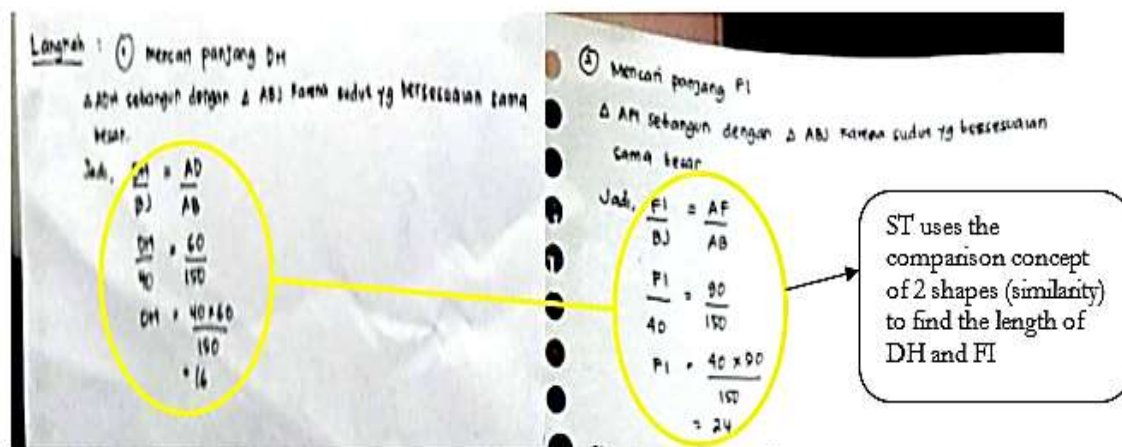 Langkah : ① Mencari panjang DH
Δ ADH sebangun dengan Δ ABJ karena sudut yg bersesuaian sama
besar.
Jadi, DH = AD
BJ AB
DH = 60
40 150
DH = 40 × 60
150
= 16
② Mencari panjang FI
Δ AFI sebangun dengan Δ ABJ karena sudut yg bersesuaian
sama besar
Jadi, FI = AF
BJ AB
FI = 90
40 150
FI = 40 × 90
150
= 24
ST uses the
comparison concept
of 2 shapes (similarity)
to find the length of
DH and FI